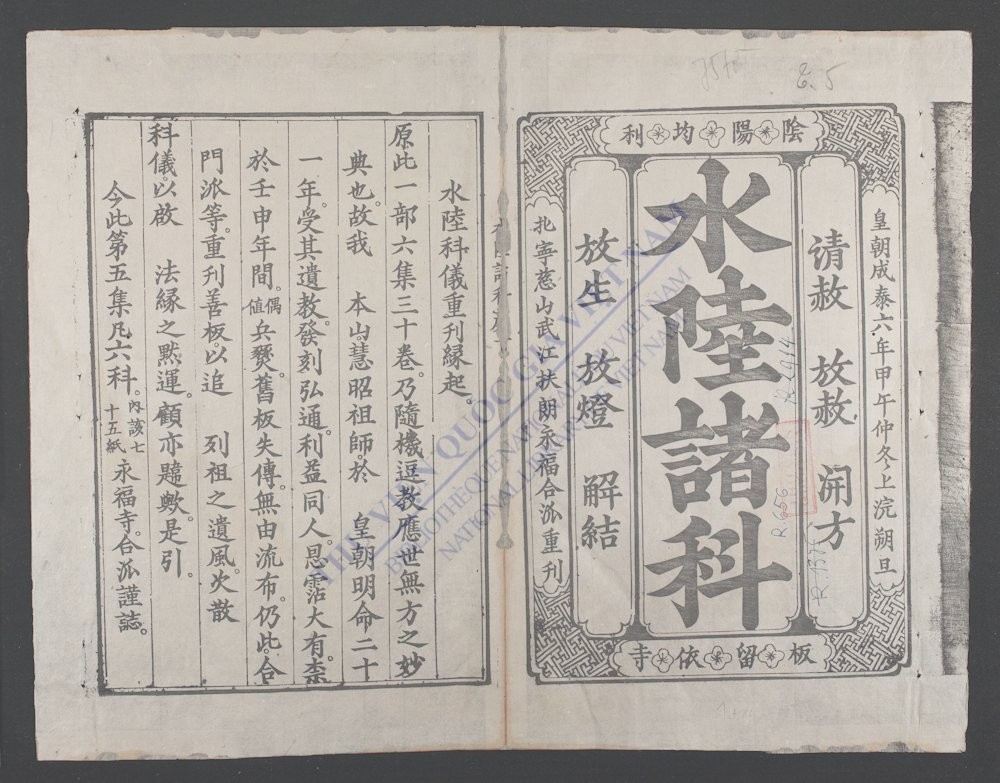 陰陽均利
皇朝成泰六年甲午仲冬上浣朔旦
请赦 放赦 開方
水陸諸科
放生 放燈 解結
北寧慈山武江扶朗永福合派重刊
板留依寺
水陸科儀重刊緣起。
原此一部六集三十卷。乃隨機逗教應世無方之妙
典也。故我 本山。慧昭祖師。於 皇朝明命二十
一年。受其遺教。發刻弘通。利益同人。恩霑大有。柰
於壬申年間。偶值兵燹。舊板失傳。無由流布。仍此。合
門派等。重刊善板。以追 列祖之遺風。少散
科儀。以啟 法緣之黙運。顧亦韙歟。是引。
今此第五集凡六科。內該七十五紙 永福寺。合派謹誌。
THƯ VIỆN QUỐC GIA VIỆT NAM
BIBLIOTHÈQUE NATIONALE DU VIETNAM
NATIONAL LIBRARY OF VIETNAM
R.656